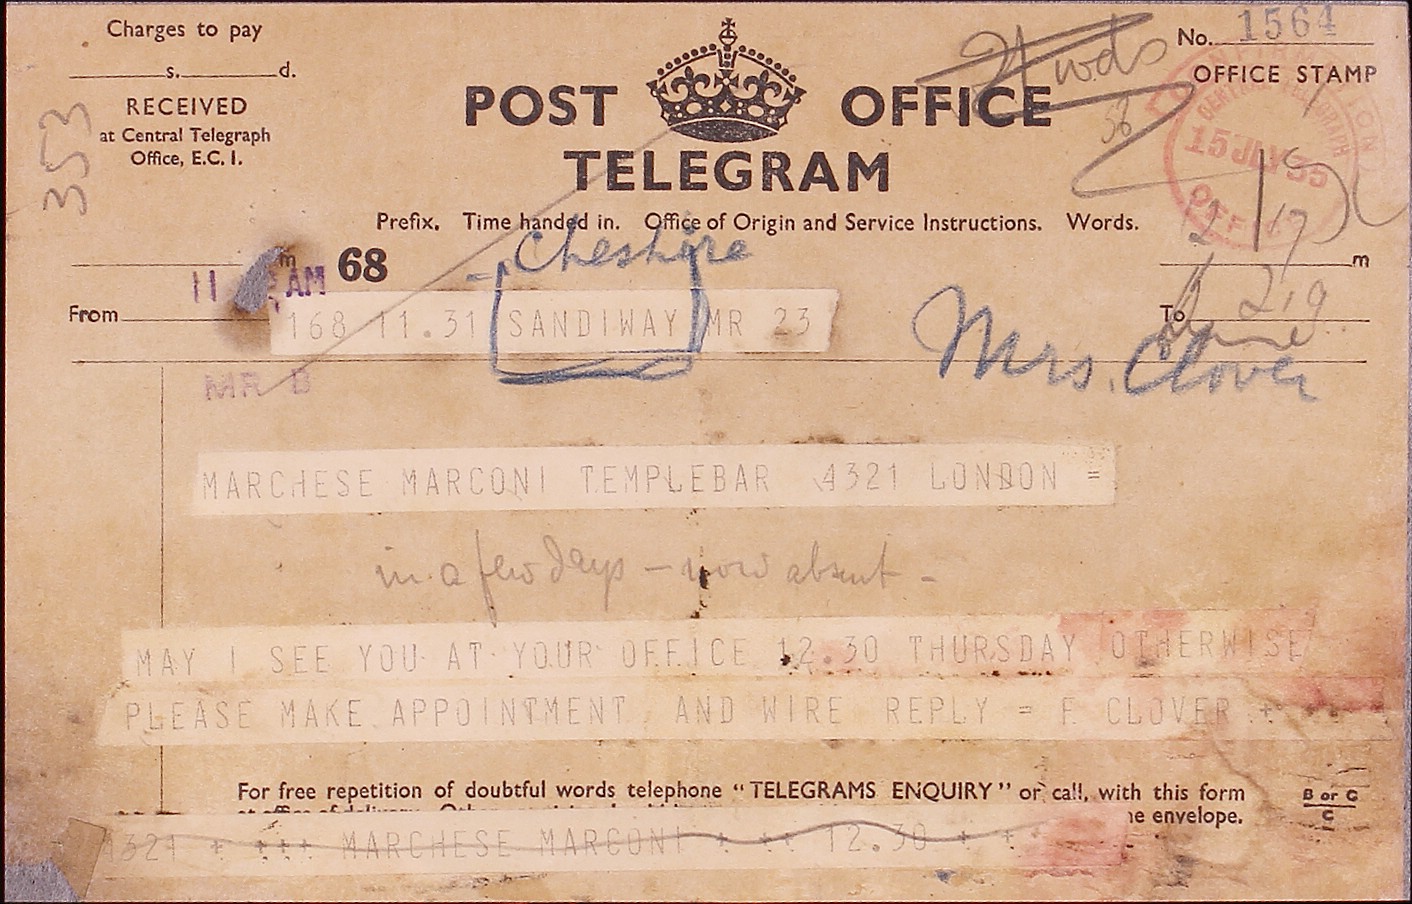 Charges to pay
s. d.
RECEIVED
at Central Telegraph
Office, E.C. 1.
353
POST OFFICE
TELEGRAM
wds
58
No. 1564
OFFICE STAMP
CENTRAL TELEGRAPH
15 JLY 35
OFFICE
Prefix. Time handed in. Office of Origin and Service Instructions. Words.
m 68
m
11 AM
Cheshire
From
168 11.31 SANDIWAY MR 23
To
219
Mrs. Clover
MR B
MARCHESE MARCONI TEMPLEBAR 4321 LONDON =
in a few days – now absent –
MAY I SEE YOU AT YOUR OFFICE 12.30 THURSDAY OTHERWISE
PLEASE MAKE APPOINTMENT AND WIRE REPLY = F CLOVER +
For free repetition of doubtful words telephone "TELEGRAMS ENQUIRY" or call, with this form
envelope.
B or C
C
4321 + +++ MARCHESE MARCONI + ++ 12.30 + +